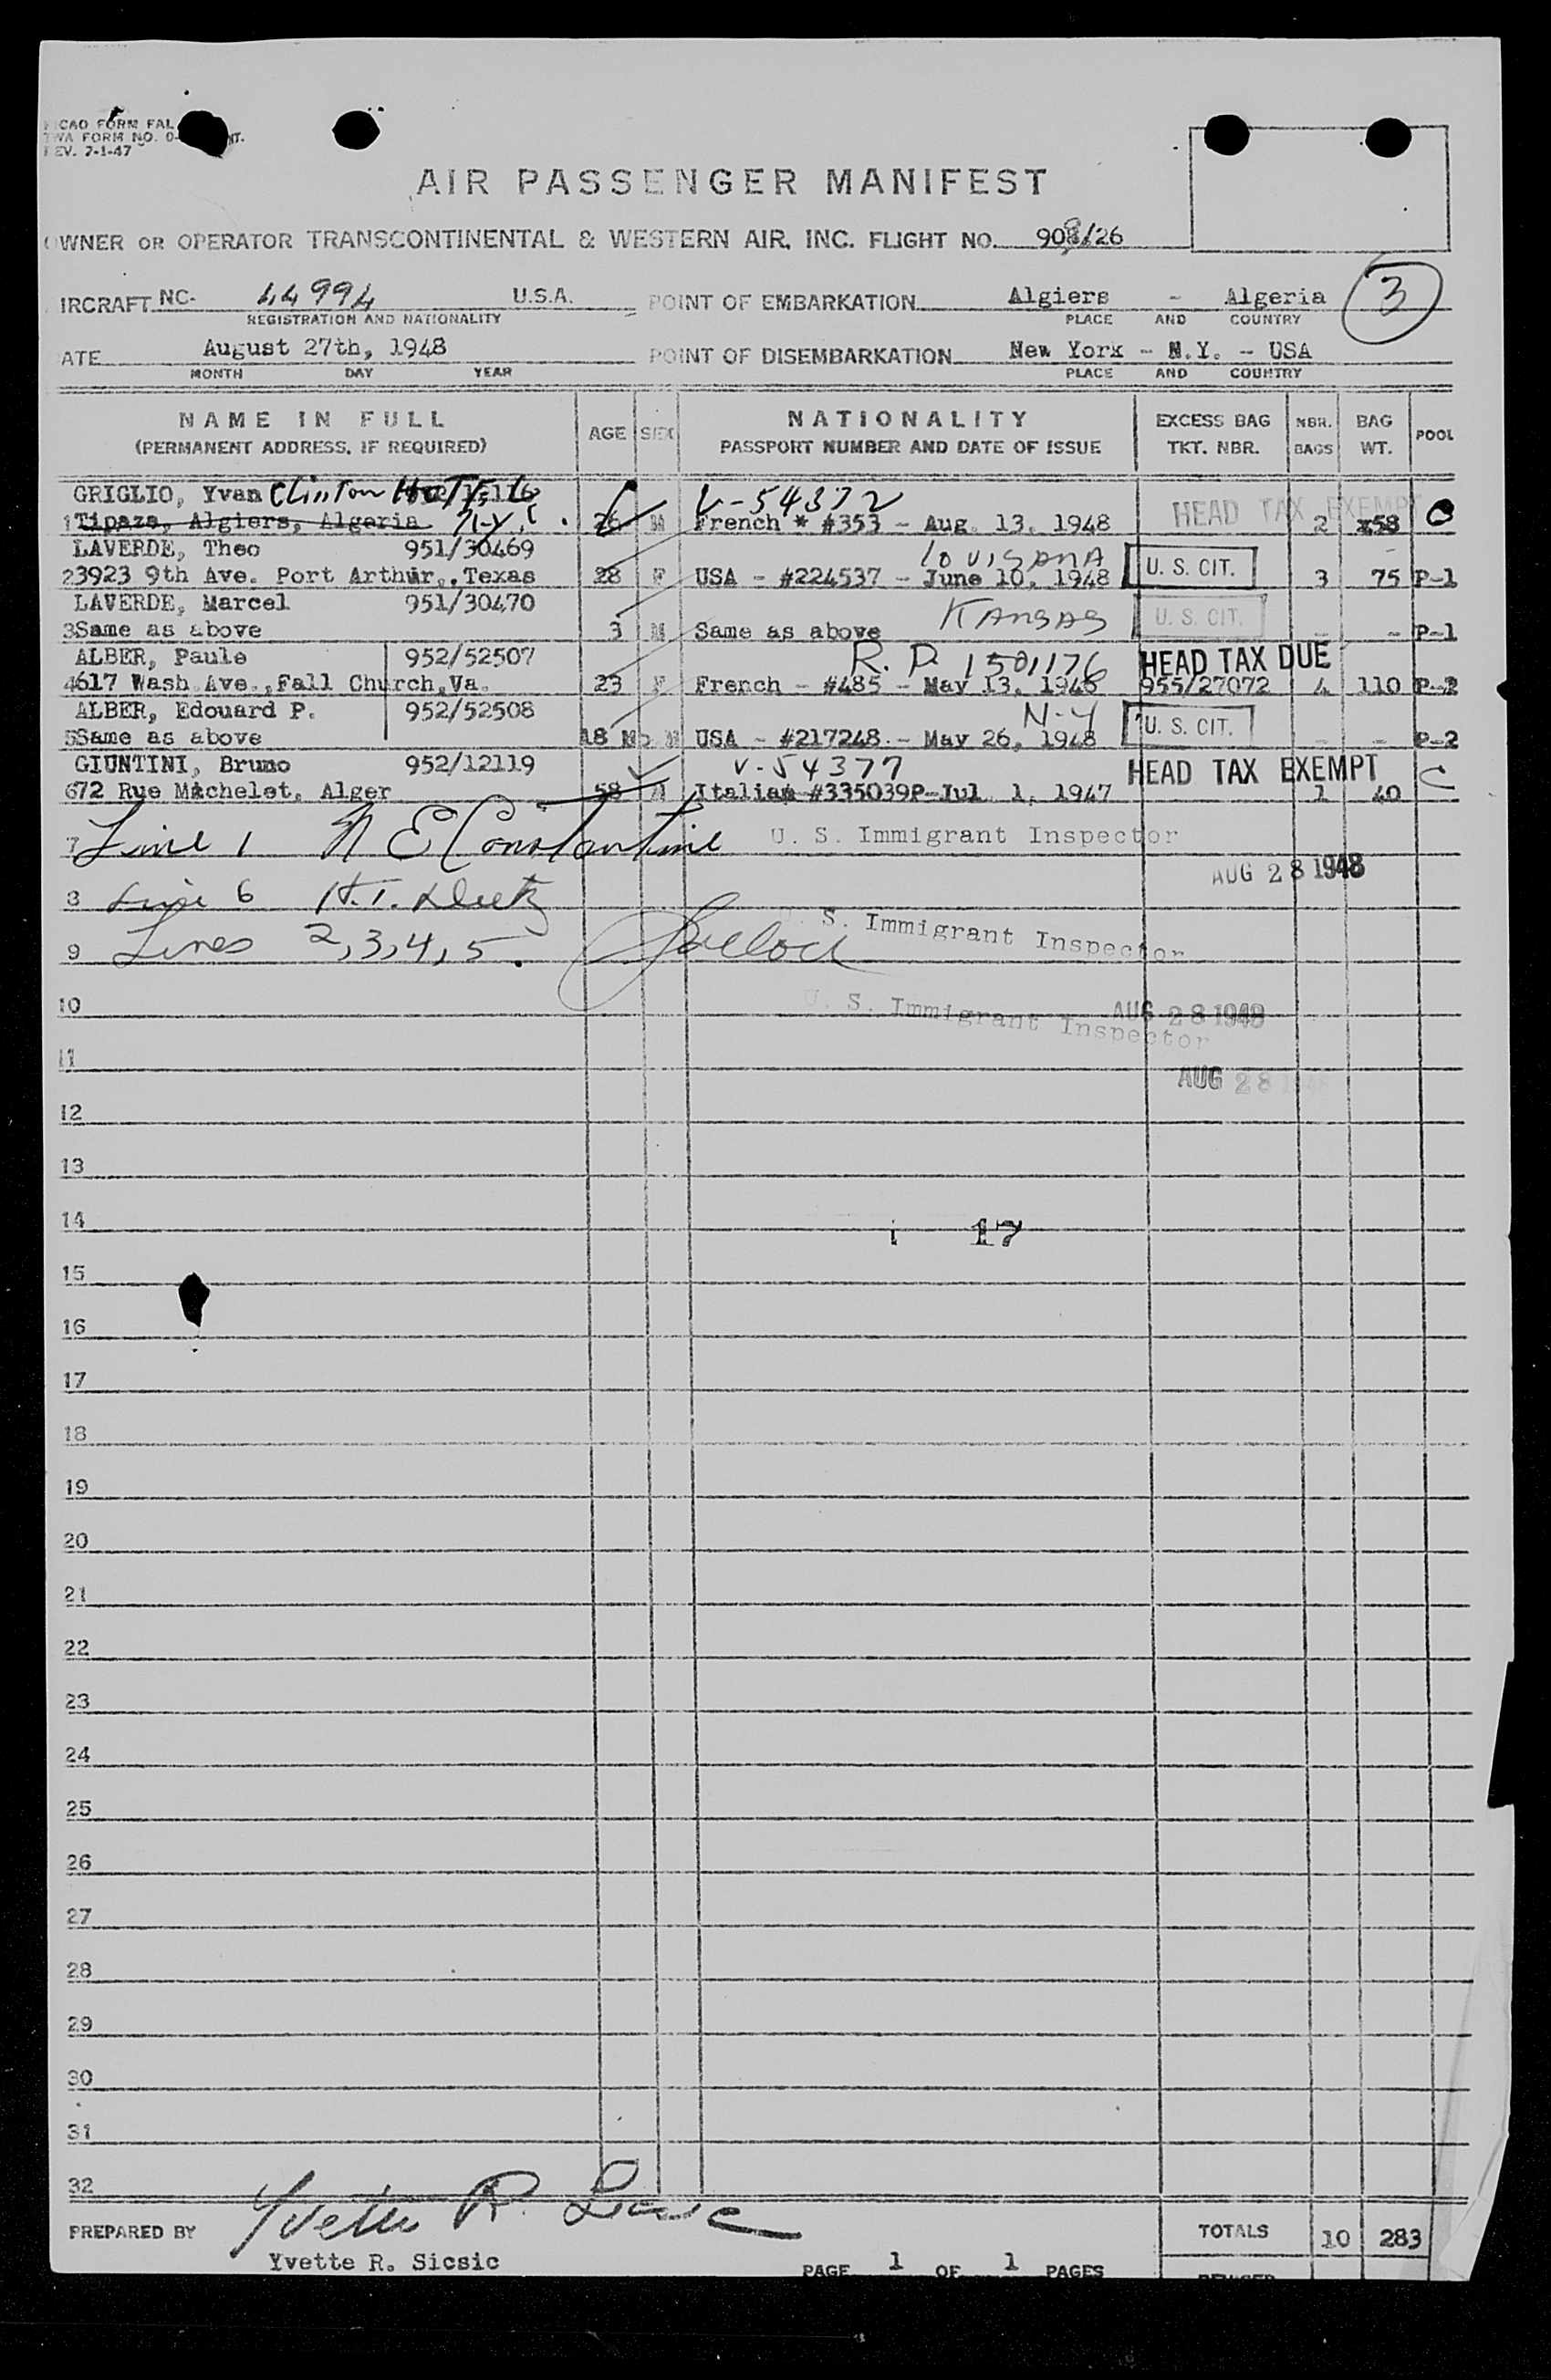 ICAO FORM FAL
TWA FORM NO. 0- INT.
REV. 7-1-47
AIR PASSENGER MANIFEST
OWNER OR OPERATOR TRANSCONTINENTAL & WESTERN AIR, INC. FLIGHT NO. 908/26
IRCRAFT NC- 44994 U.S.A. POINT OF EMBARKATION Algiers - Algeria 3
REGISTRATION AND NATIONALITY PLACE AND COUNTRY
ATE August 27th, 1948 POINT OF DISEMBARKATION New York - N.Y. - USA
MONTH DAY YEAR PLACE AND COUNTRY
NAME IN FULL AGE SEX NATIONALITY EXCESS BAG NBR. BAG POOL
(PERMANENT ADDRESS, IF REQUIRED) PASSPORT NUMBER AND DATE OF ISSUE TKT. NBR. BAGS WT.
GRIGLIO, Yvan Clinton Hotel V-54372 HEAD TAX EXEMPT
1 Tipaza, Algiers, Algeria N.Y.C. 26 M French * #353 - Aug. 13, 1948 2 x58 C
LAVERDE, Theo 951/30469 LOUISANA U. S. CIT.
2 3923 9th Ave. Port Arthur, Texas 28 F USA - #224537 - June 10, 1948 3 75 P-1
LAVERDE, Marcel 951/30470 KANSAS U. S. CIT.
3 Same as above 3 M Same as above - - P-1
ALBER, Paule 952/52507 R.P. 1501176 HEAD TAX DUE
4 617 Wash Ave., Fall Church, Va. 23 F French - #485 - May 13, 1948 955/27072 4 110 P-2
ALBER, Edouard P. 952/52508 N-Y U. S. CIT.
5 Same as above 18 Mo M USA - #217248 - May 26, 1948 - - P-2
GIUNTINI, Bruno 952/12119 V-54377 HEAD TAX EXEMPT C
6 72 Rue Michelet, Alger 58 M Italian #335039P-Jul 1, 1947 1 40
7 Line 1 N E Constantine U. S. Immigrant Inspector
AUG 28 1948
8 Line 6 H.T.
U. S. Immigrant Inspector
9 Lines 2,3,4,5.
10
U. S. Immigrant Inspector AUG 28 1948
11
AUG 28 1948
12
13
14 17
15
16
17
18
19
20
21
22
23
24
25
26
27
28
29
30
31
32
PREPARED BY Yvette R. Sicsic TOTALS 10 283
Yvette R. Sicsic PAGE 1 OF 1 PAGES